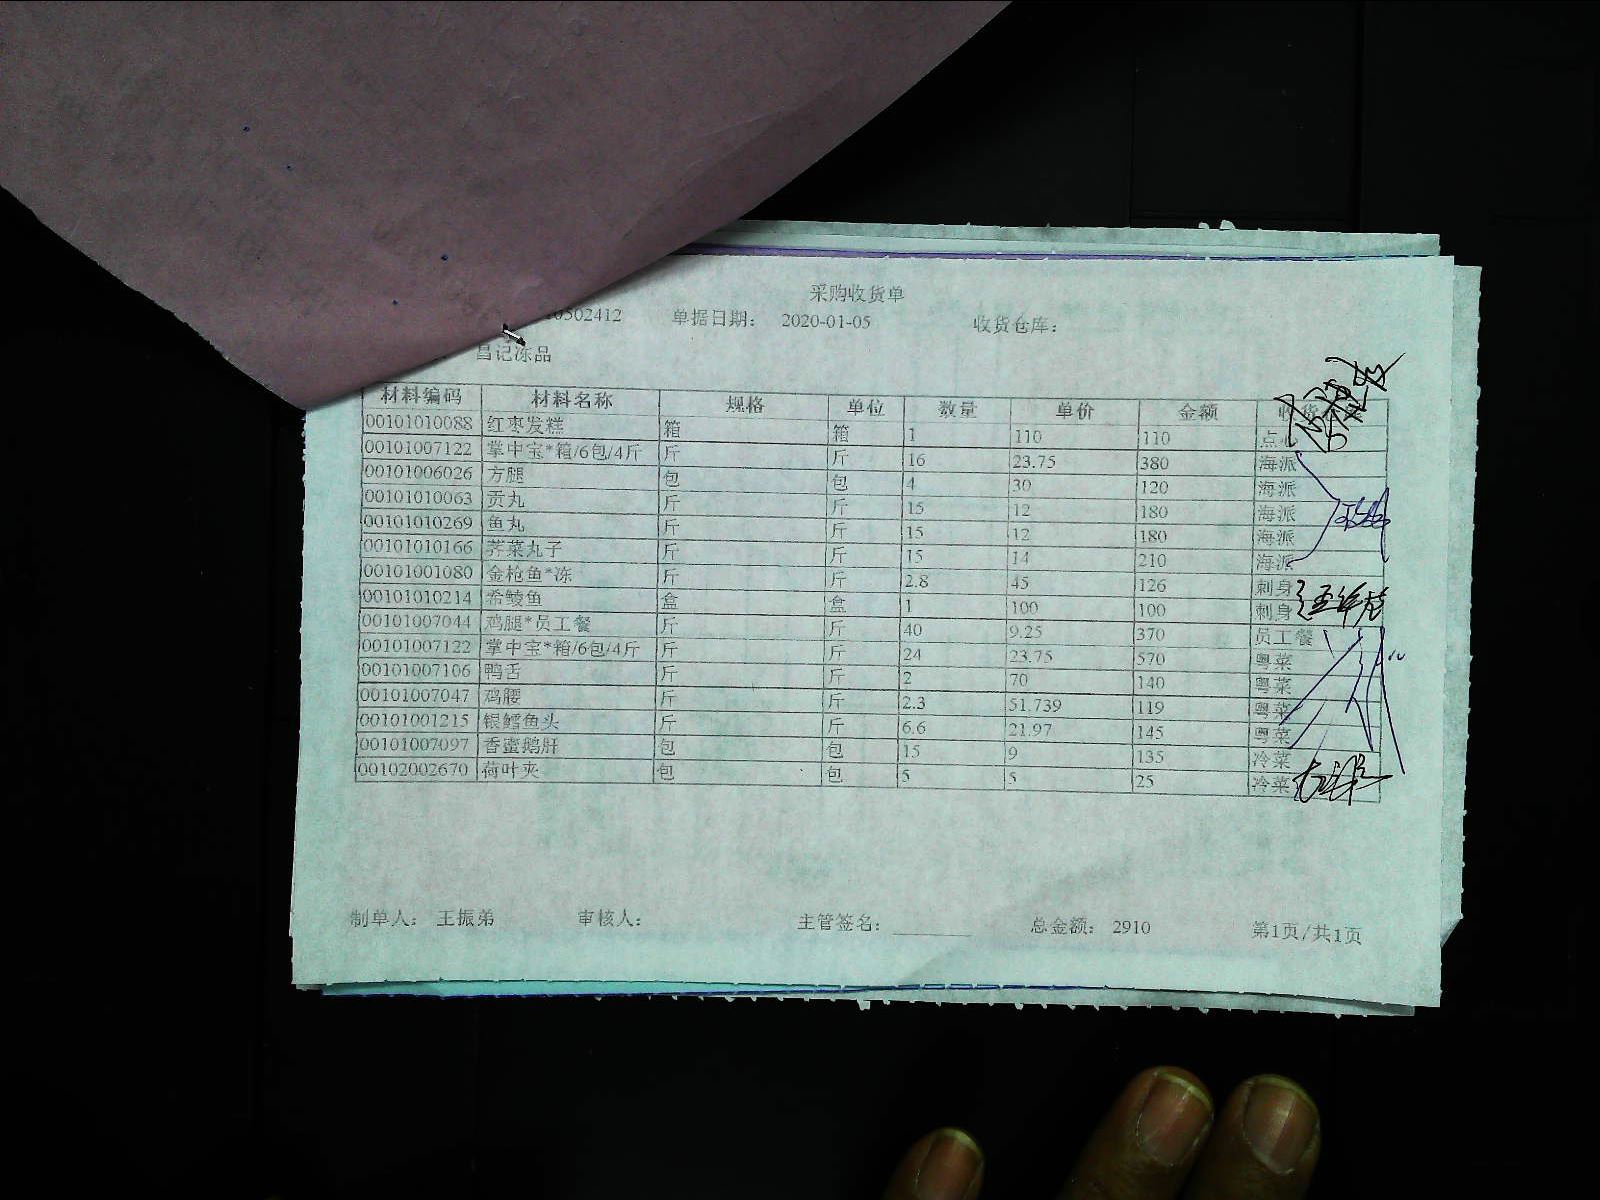 采购收货单
0502412 单据日期： 2020-01-05 收货仓库：
昌记冻品
材料编码 材料名称 规格 单位 数量 单价 金额 收货
00101010088 红枣发糕 箱 箱 1 110 110 点
00101007122 掌中宝*箱/6包/4斤 斤 斤 16 23.75 380 海派
00101006026 方腿 包 包 4 30 120 海派
00101010063 贡丸 斤 斤 15 12 180 海派
00101010269 鱼丸 斤 斤 15 12 180 海派
00101010166 荠菜丸子 斤 斤 15 14 210 海派
00101001080 金枪鱼*冻 斤 斤 2.8 45 126 刺身
00101010214 希鲮鱼 盒 盒 1 100 100 刺身
00101007044 鸡腿*员工餐 斤 斤 40 9.25 370 员工餐
00101007122 掌中宝*箱/6包/4斤 斤 斤 24 23.75 570 粤菜
00101007106 鸭舌 斤 斤 2 70 140 粤菜
00101007047 鸡腰 斤 斤 2.3 51.739 119 粤菜
00101001215 银鳕鱼头 斤 斤 6.6 21.97 145 粤菜
00101007097 香蜜鹅肝 包 包 15 9 135 冷菜
00102002670 荷叶夹 包 包 5 5 25 冷菜
制单人： 王振弟 审核人： 主管签名： 总金额： 2910 第1页/共1页